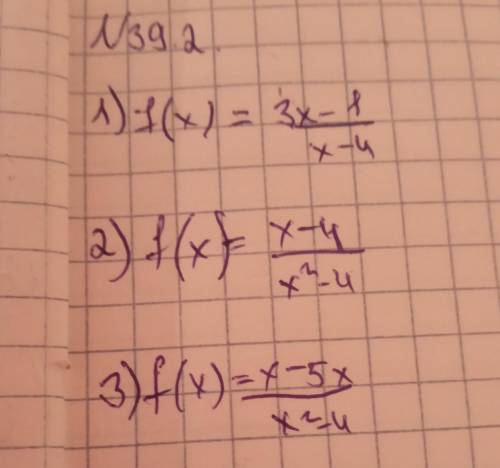 N39.2.
1) f(x) = 3x-1/x-4
2) f(x) = x-4/x²-4
3) f(x) = x-5x/x²-4